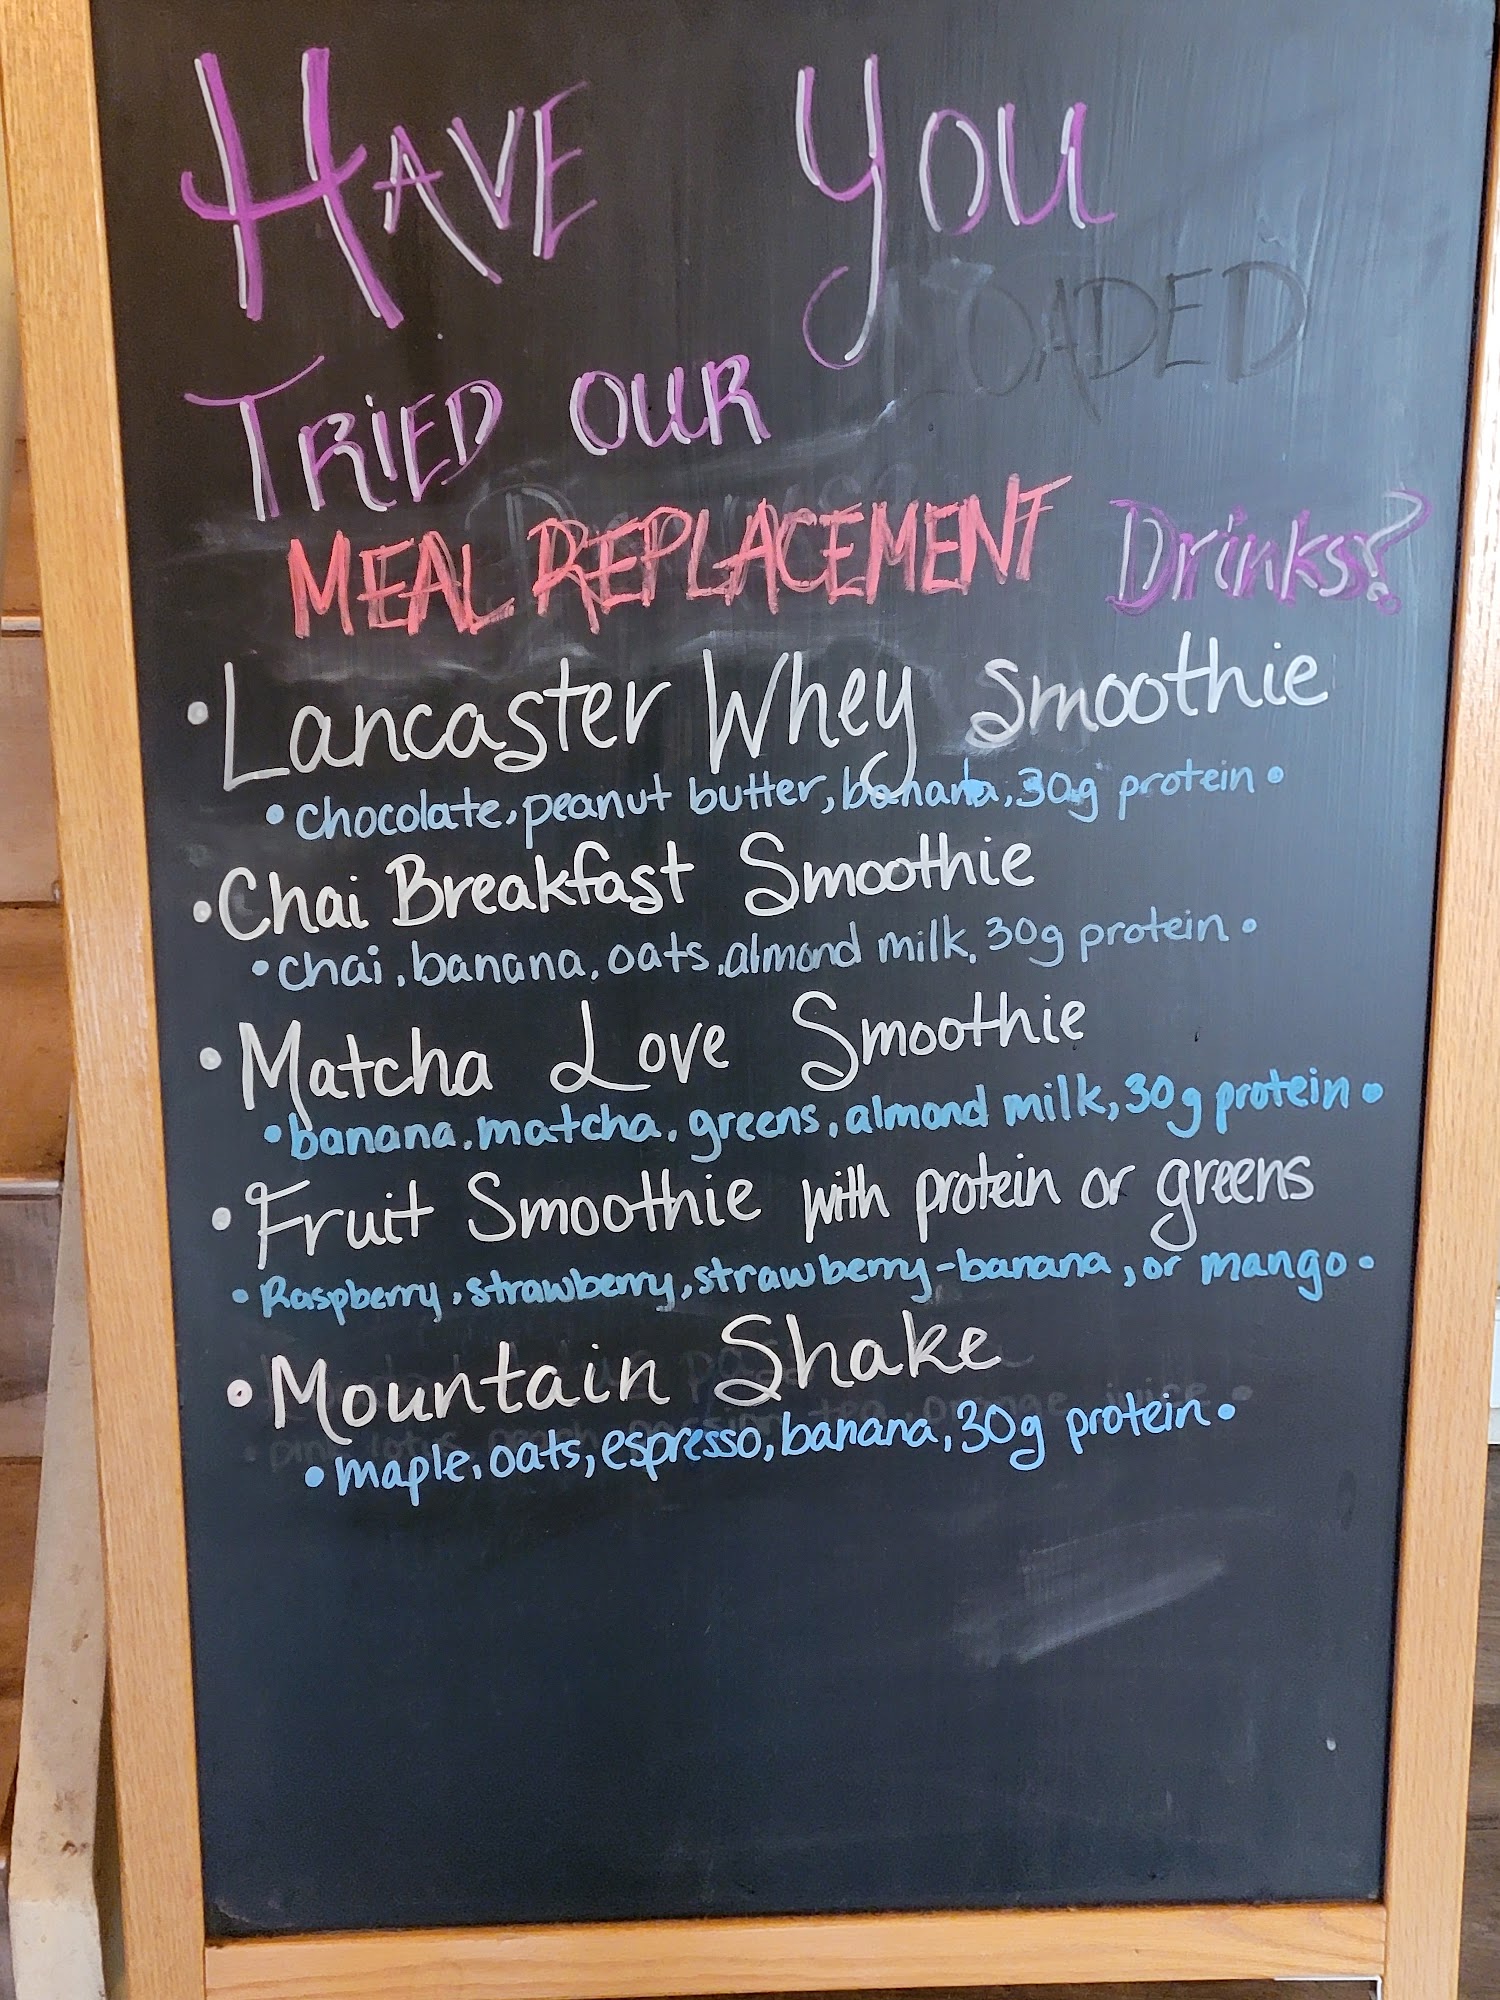 HAVE YOU
LOADED
TRiED OUR
MEAL REPLACEMENT Drinks?
• Lancaster Whey Smoothie
• chocolate, peanut butter, banana, 30g protein •
• Chai Breakfast Smoothie
• chai, banana, oats, almond milk, 30g protein •
• Matcha Love Smoothie
• banana, matcha, greens, almond milk, 30g protein •
• Fruit Smoothie with protein or greens
• Raspberry, strawberry, strawberry-banana, or mango •
• Mountain Shake
• maple, oats, espresso, banana, 30g protein •